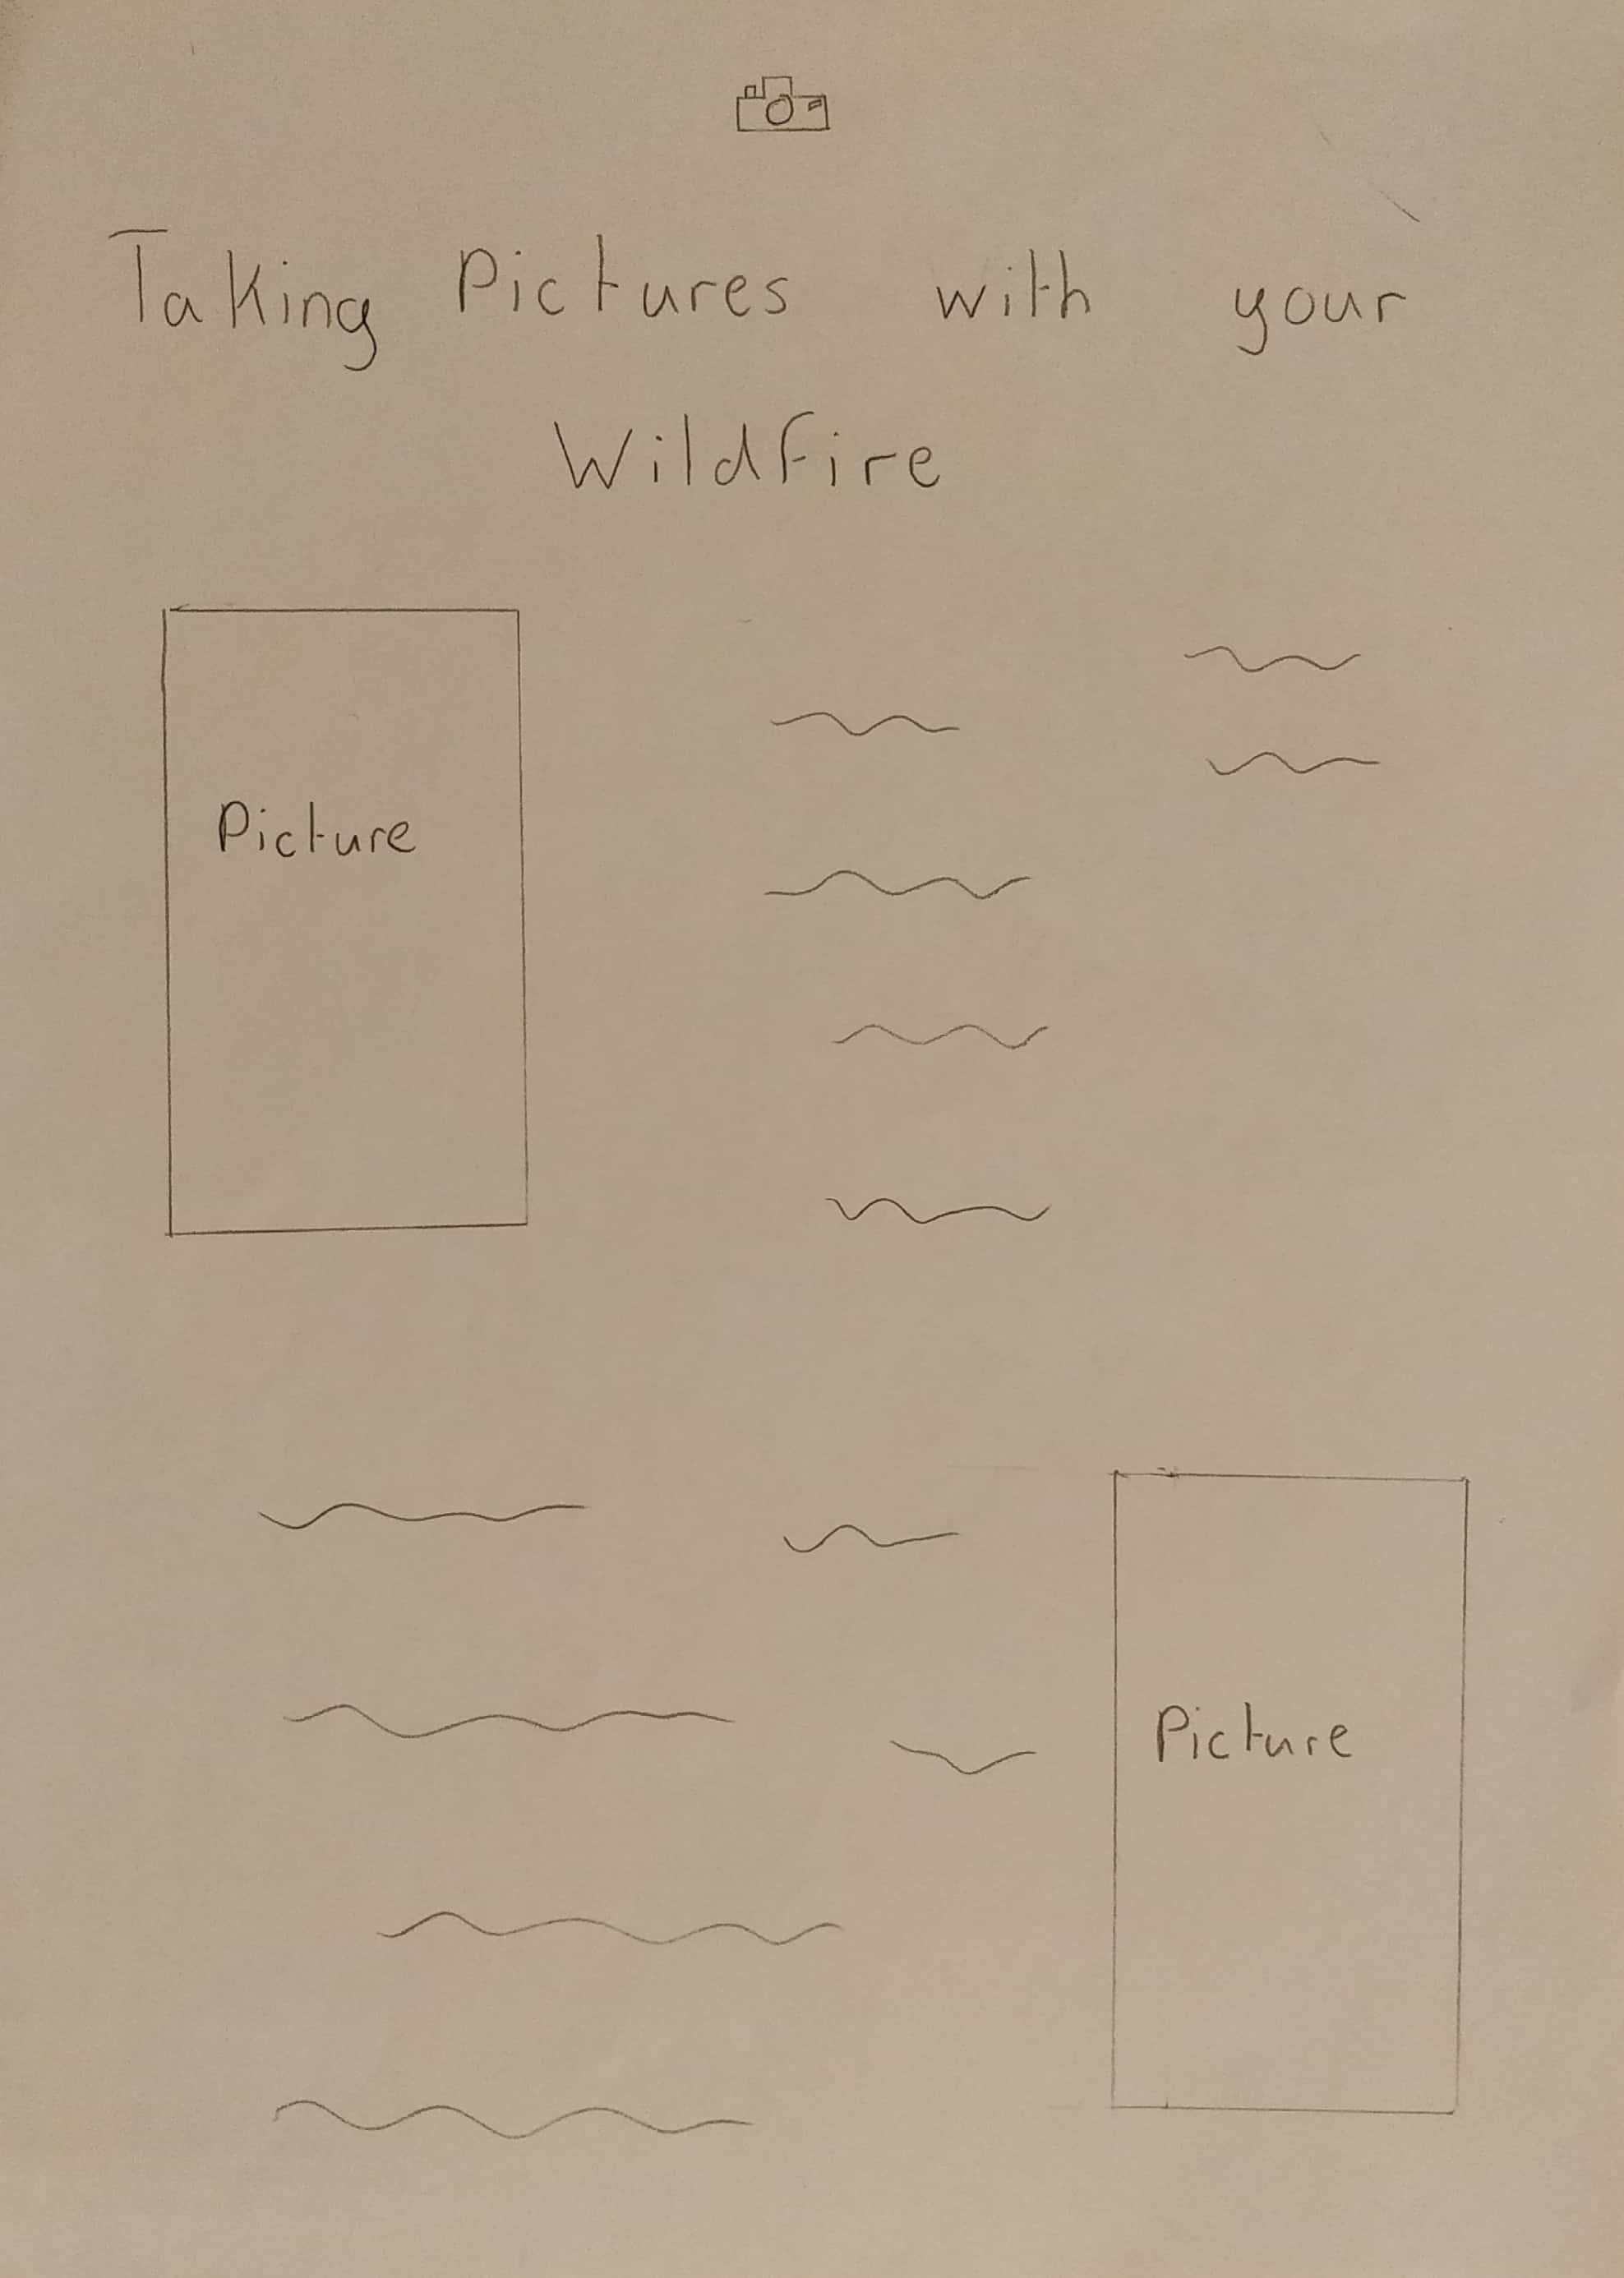 Taking Pictures with your
Wildfire
Picture
Picture